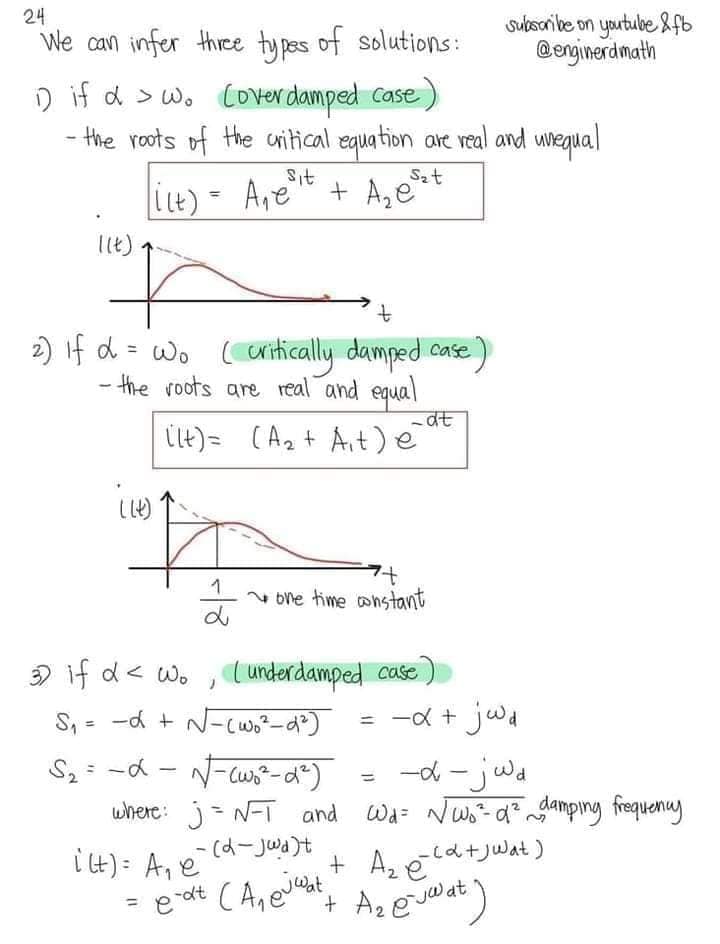 24
We can infer three types of solutions:
subscribe on youtube & fb
@enginerdmath
1) if α > ω₀ (overdamped case)
- the roots of the critical equation are real and unequal
i(t) = A₁e^(s₁t) + A₂e^(s₂t)
i(t)
t
2) If α = ω₀ (critically damped case)
- the roots are real and equal
i(t) = (A₂ + A₁t) e^(-αt)
i(t)
t
1/α ↝ one time constant
3) if α < ω₀, (underdamped case)
S₁ = -α + √-(ω₀²-α²) = -α + jωd
S₂ = -α - √-(ω₀²-α²) = -α - jωd
where: j = √-1 and ωd = √ω₀²-α² ↝ damping frequency
i(t) = A₁e^-(α-jωd)t + A₂e^-(α+jωdt)
= e^-αt (A₁e^jωdt + A₂e^-jωdt)